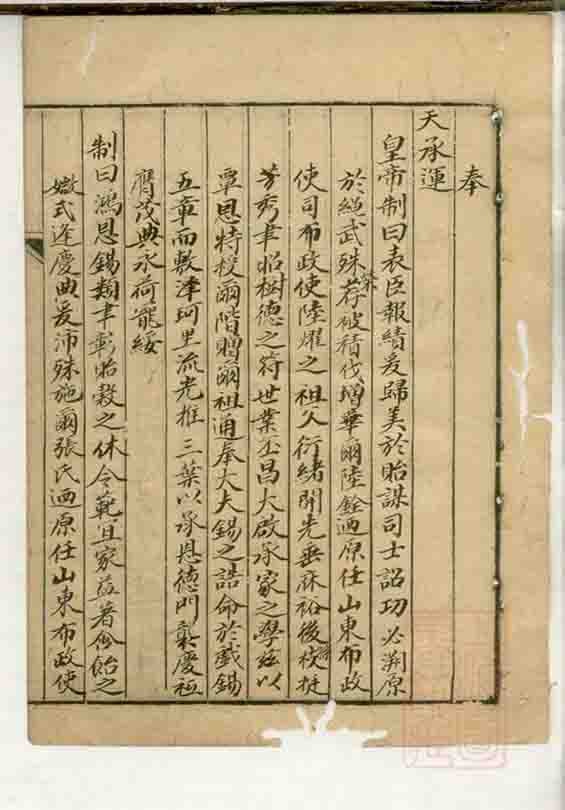 奉
天承運
皇帝制曰表臣報績爰歸美於貽謀司士詔功必溯原
於繩武殊榮荐被積伐增華爾陸銓迺原任山東布政
使司布政使陸燿之祖父衍緒開先垂庥裕後枝挺
芳秀聿昭樹德之符世業丕昌大啟承家之學茲以
覃恩特授爾階贈爾祖通奉大夫錫之誥命於戲錫
五章而敷澤珂里流光推三葉以承恩德門襲慶祗
膺茂典永荷寵綏
制曰鴻恩錫類聿彰貽榖之休令範宜家益著飭之
媺式逢慶典爰沛殊施爾張氏迺原任山東布政使